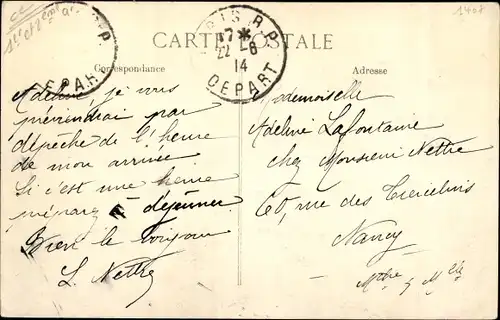 1408
CARTE POSTALE
Correspondance
Adresse
PARIS R.P.
17*
22 - 6
14
DEPART
R.P.
DEPART
Adeline, je vous
préviendrai par
dépêche de l'heure
de mon arrivée
Si c'est une heure
préparez à déjeuner.
Bien le bonjour
L. Nettre
Mademoiselle
Adeline Lafontaine
chez Monsieur Nettre
60, rue des Tiercelins
Nancy
Mthe